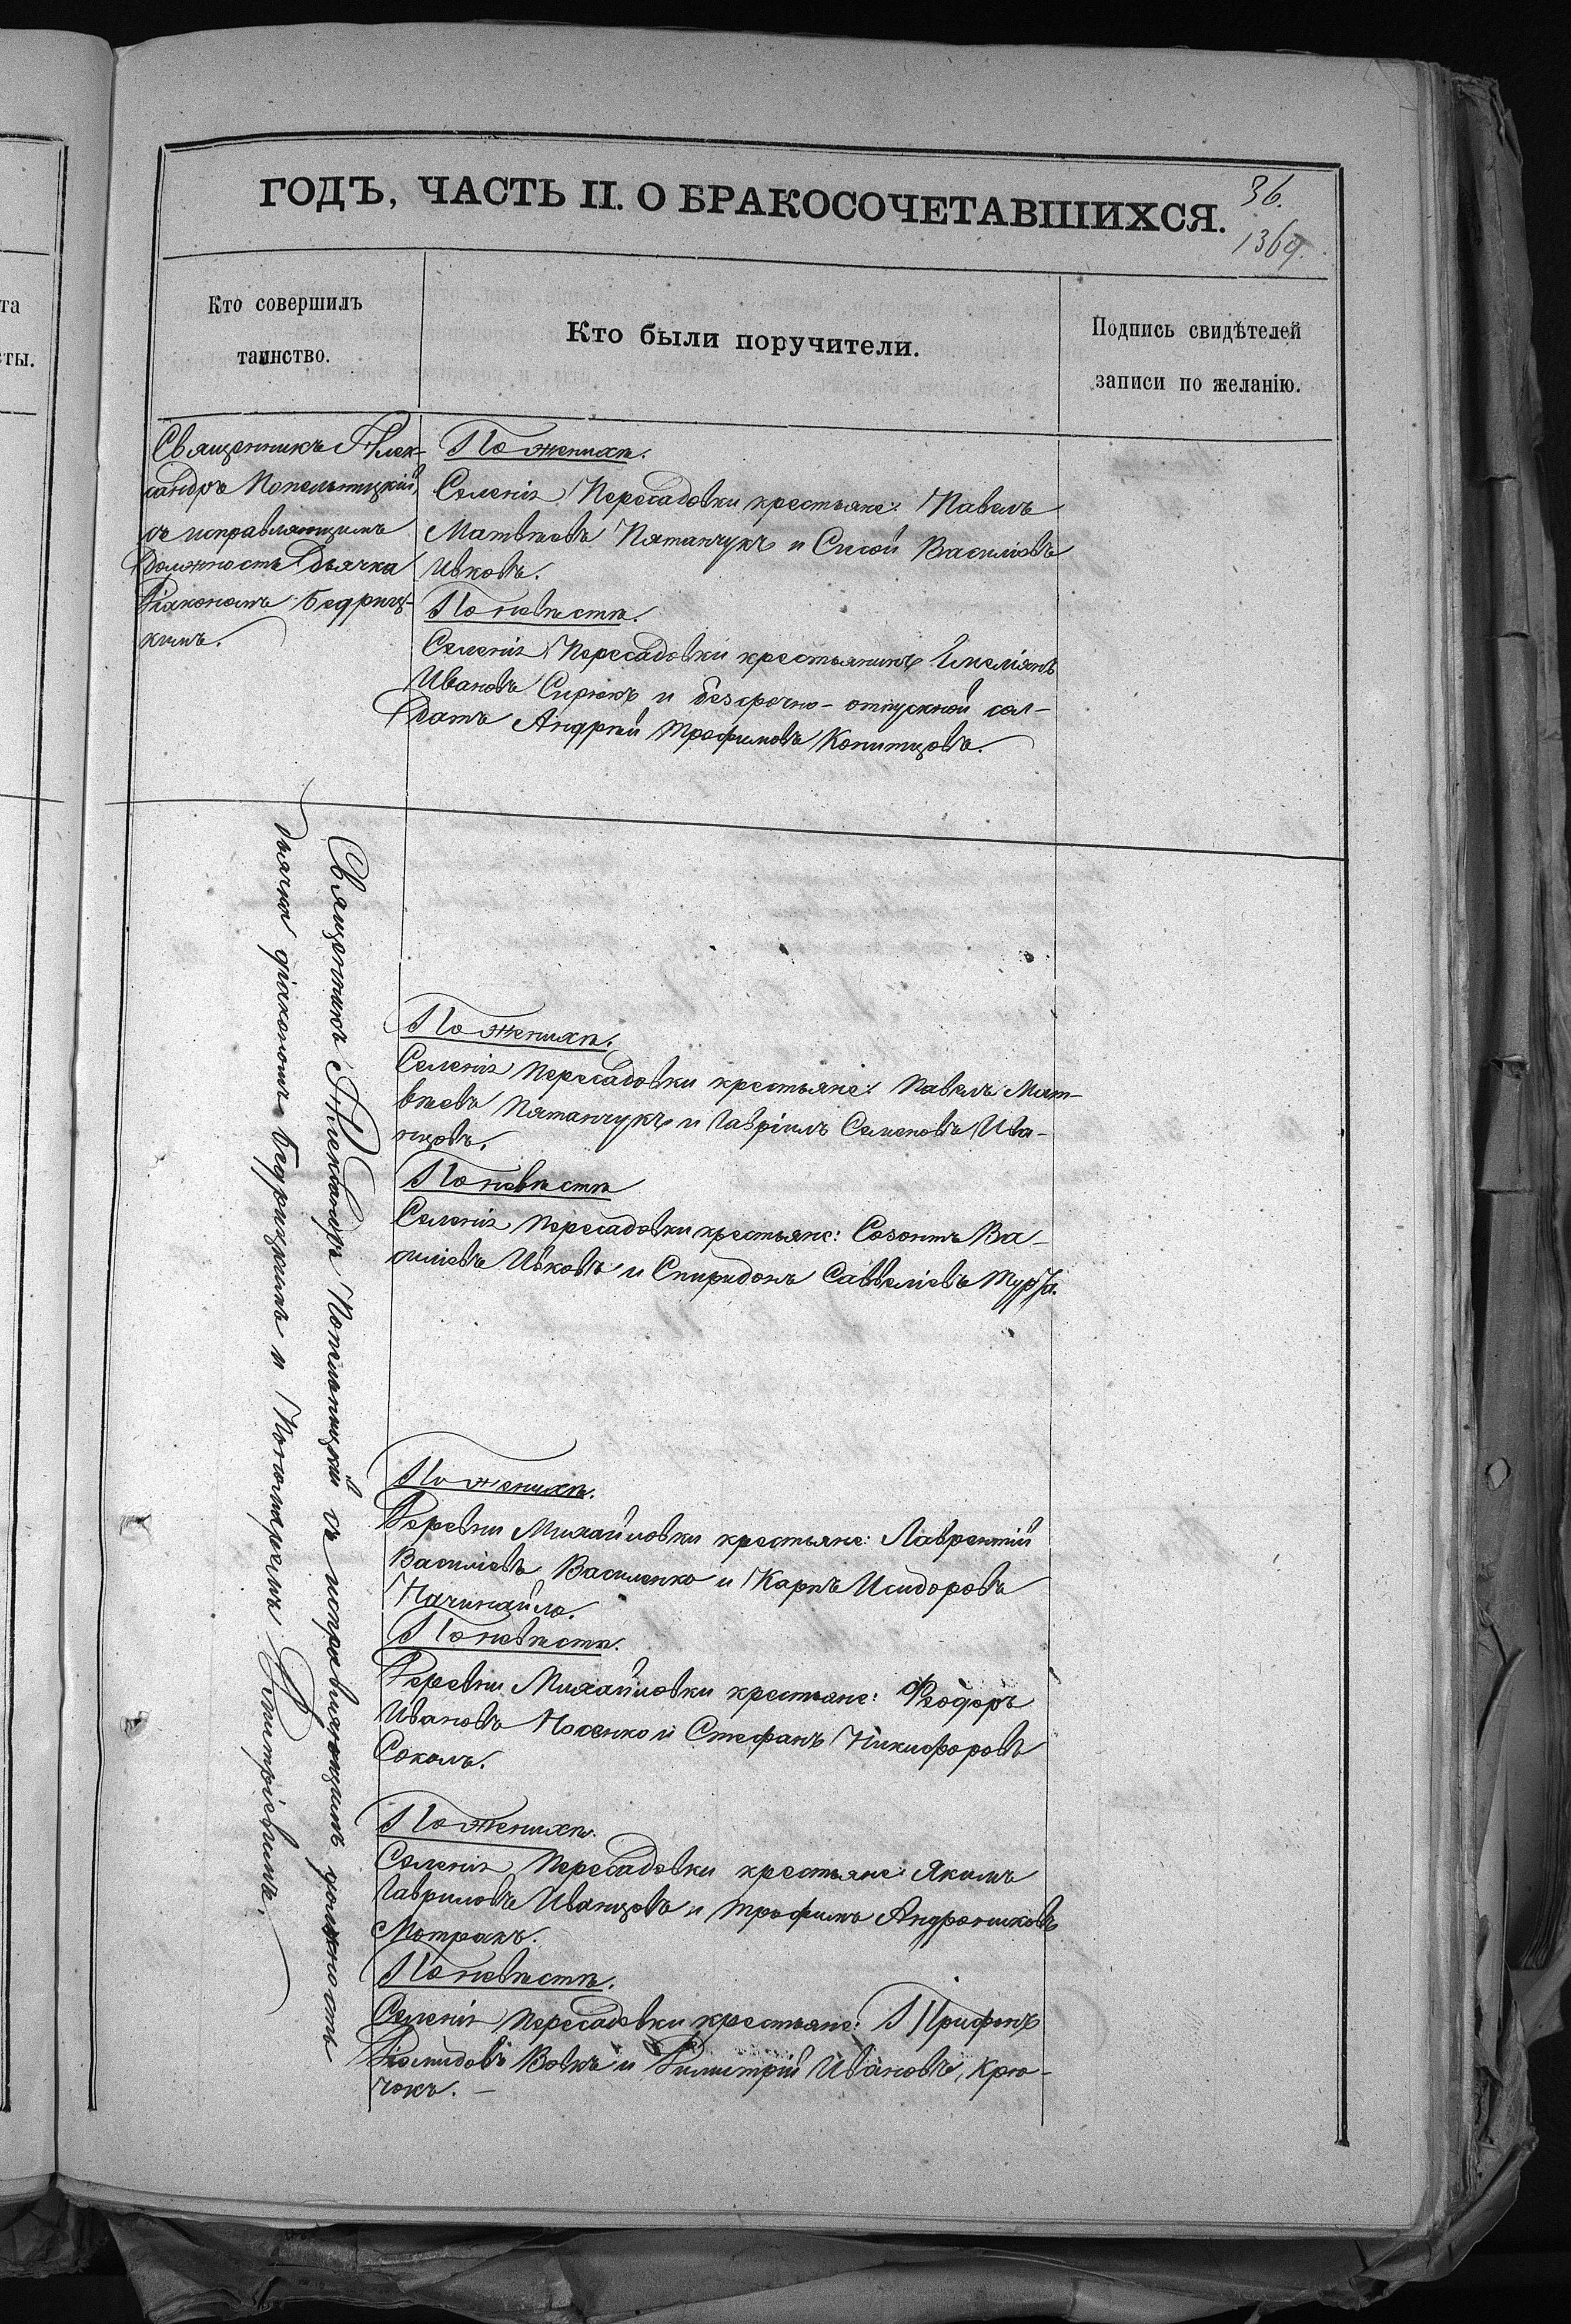 та
сты.
ГОДЪ, ЧАСТЬ II. О БРАКОСОЧЕТАВШИХСЯ.
36.
1369.
Кто совершилъ
таинство.
Кто были поручители.
Подпись свидѣтелей
записи по желанію.
Священникъ Алек-
сандръ Попельницкій,
съ исправляющимъ
должность дьячка
Діакономъ Бедриц-
кимъ.
По женихѣ.
Селенія Пересадовки крестьяне: Павелъ
Матвѣевъ Пятанчукъ и Сисой Василіевъ
Ивковъ.
По невѣстѣ.
Селенія Пересадовки крестьянинъ Емеліянъ
Ивановъ Сирюкъ и безсрочно-отпускной сол-
датъ Андрей Трофимовъ Копитцовъ.
Священникъ Александръ Попельницкій съ исправляющимъ должность
дьячка діакономъ Бедрицкимъ и Пономаремъ Димитріевымъ.
По женихѣ.
Селенія Пересадовки крестьяне: Павелъ Мат-
вѣевъ Пятанчукъ и Гавріилъ Семеновъ Ива-
нцовъ.
По невѣстѣ
Селенія Пересадовки крестьяне: Созонтъ Ва-
силіевъ Ивковъ и Спиридонъ Савеліевъ Турта.
По женихѣ.
Деревни Михайловки крестьяне: Лаврентій
Василіевъ Василенко и Карпъ Исидоровъ
Начинайло.
По невѣстѣ.
Деревни Михайловки крестьяне: Феодоръ
Ивановъ Носенко и Стефанъ Никифоровъ
Соколъ.
По женихѣ.
Селенія Пересадовки крестьяне: Якимъ
Гавриловъ Иванцовъ и Трофимъ Андрониковъ
Мотракъ.
По невѣстѣ.
Селенія Пересадовки крестьяне: Трифонъ
Діомидовъ Вовкъ и Димитрій Ивановъ Крю-
чокъ. –